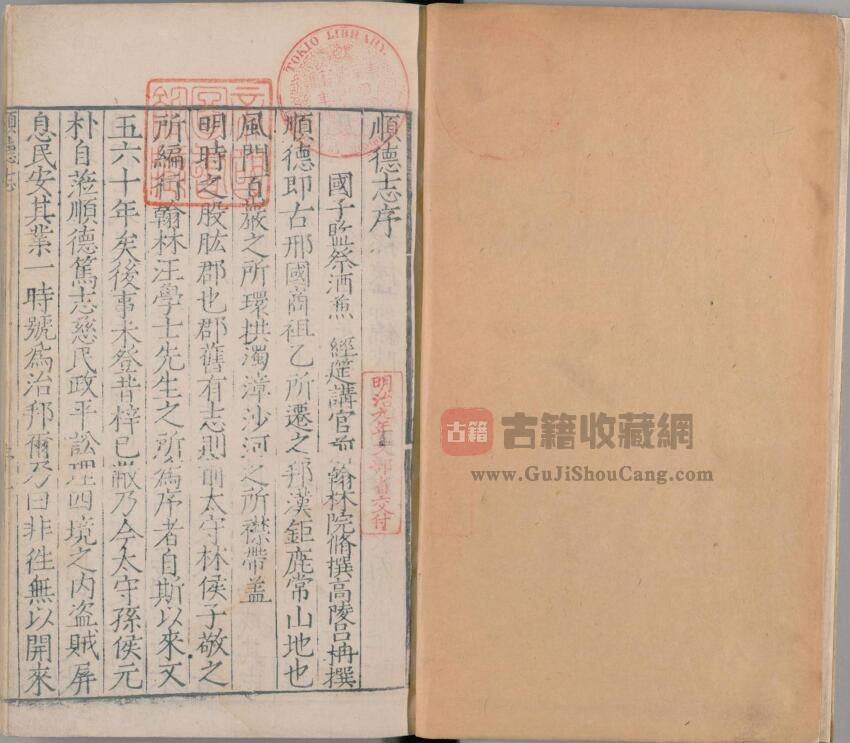 順德志序
國子監祭酒兼 經筵講官前翰林院脩撰高陵呂柟撰
順德即古邢國商祖乙所遷之邦漢鉅鹿常山地也
風門百巖之所環拱濁漳沙河之所襟帶盖
明時之股肱郡也郡舊有志則前太守林侯子敬之
所編行翰林汪學士先生之所為序者自斯以來文
五六十年矣後事未登昔梓已敝乃今太守孫侯元
朴自蒞順德篤志慈民政平訟理四境之内盗賊屏
息民安其業一時號為治邦爾乃曰非徃無以開來
順德志
TOKIO LIBRARY
明治九年文部省交付
古籍
古籍收藏網
www.GuJiShouCang.com